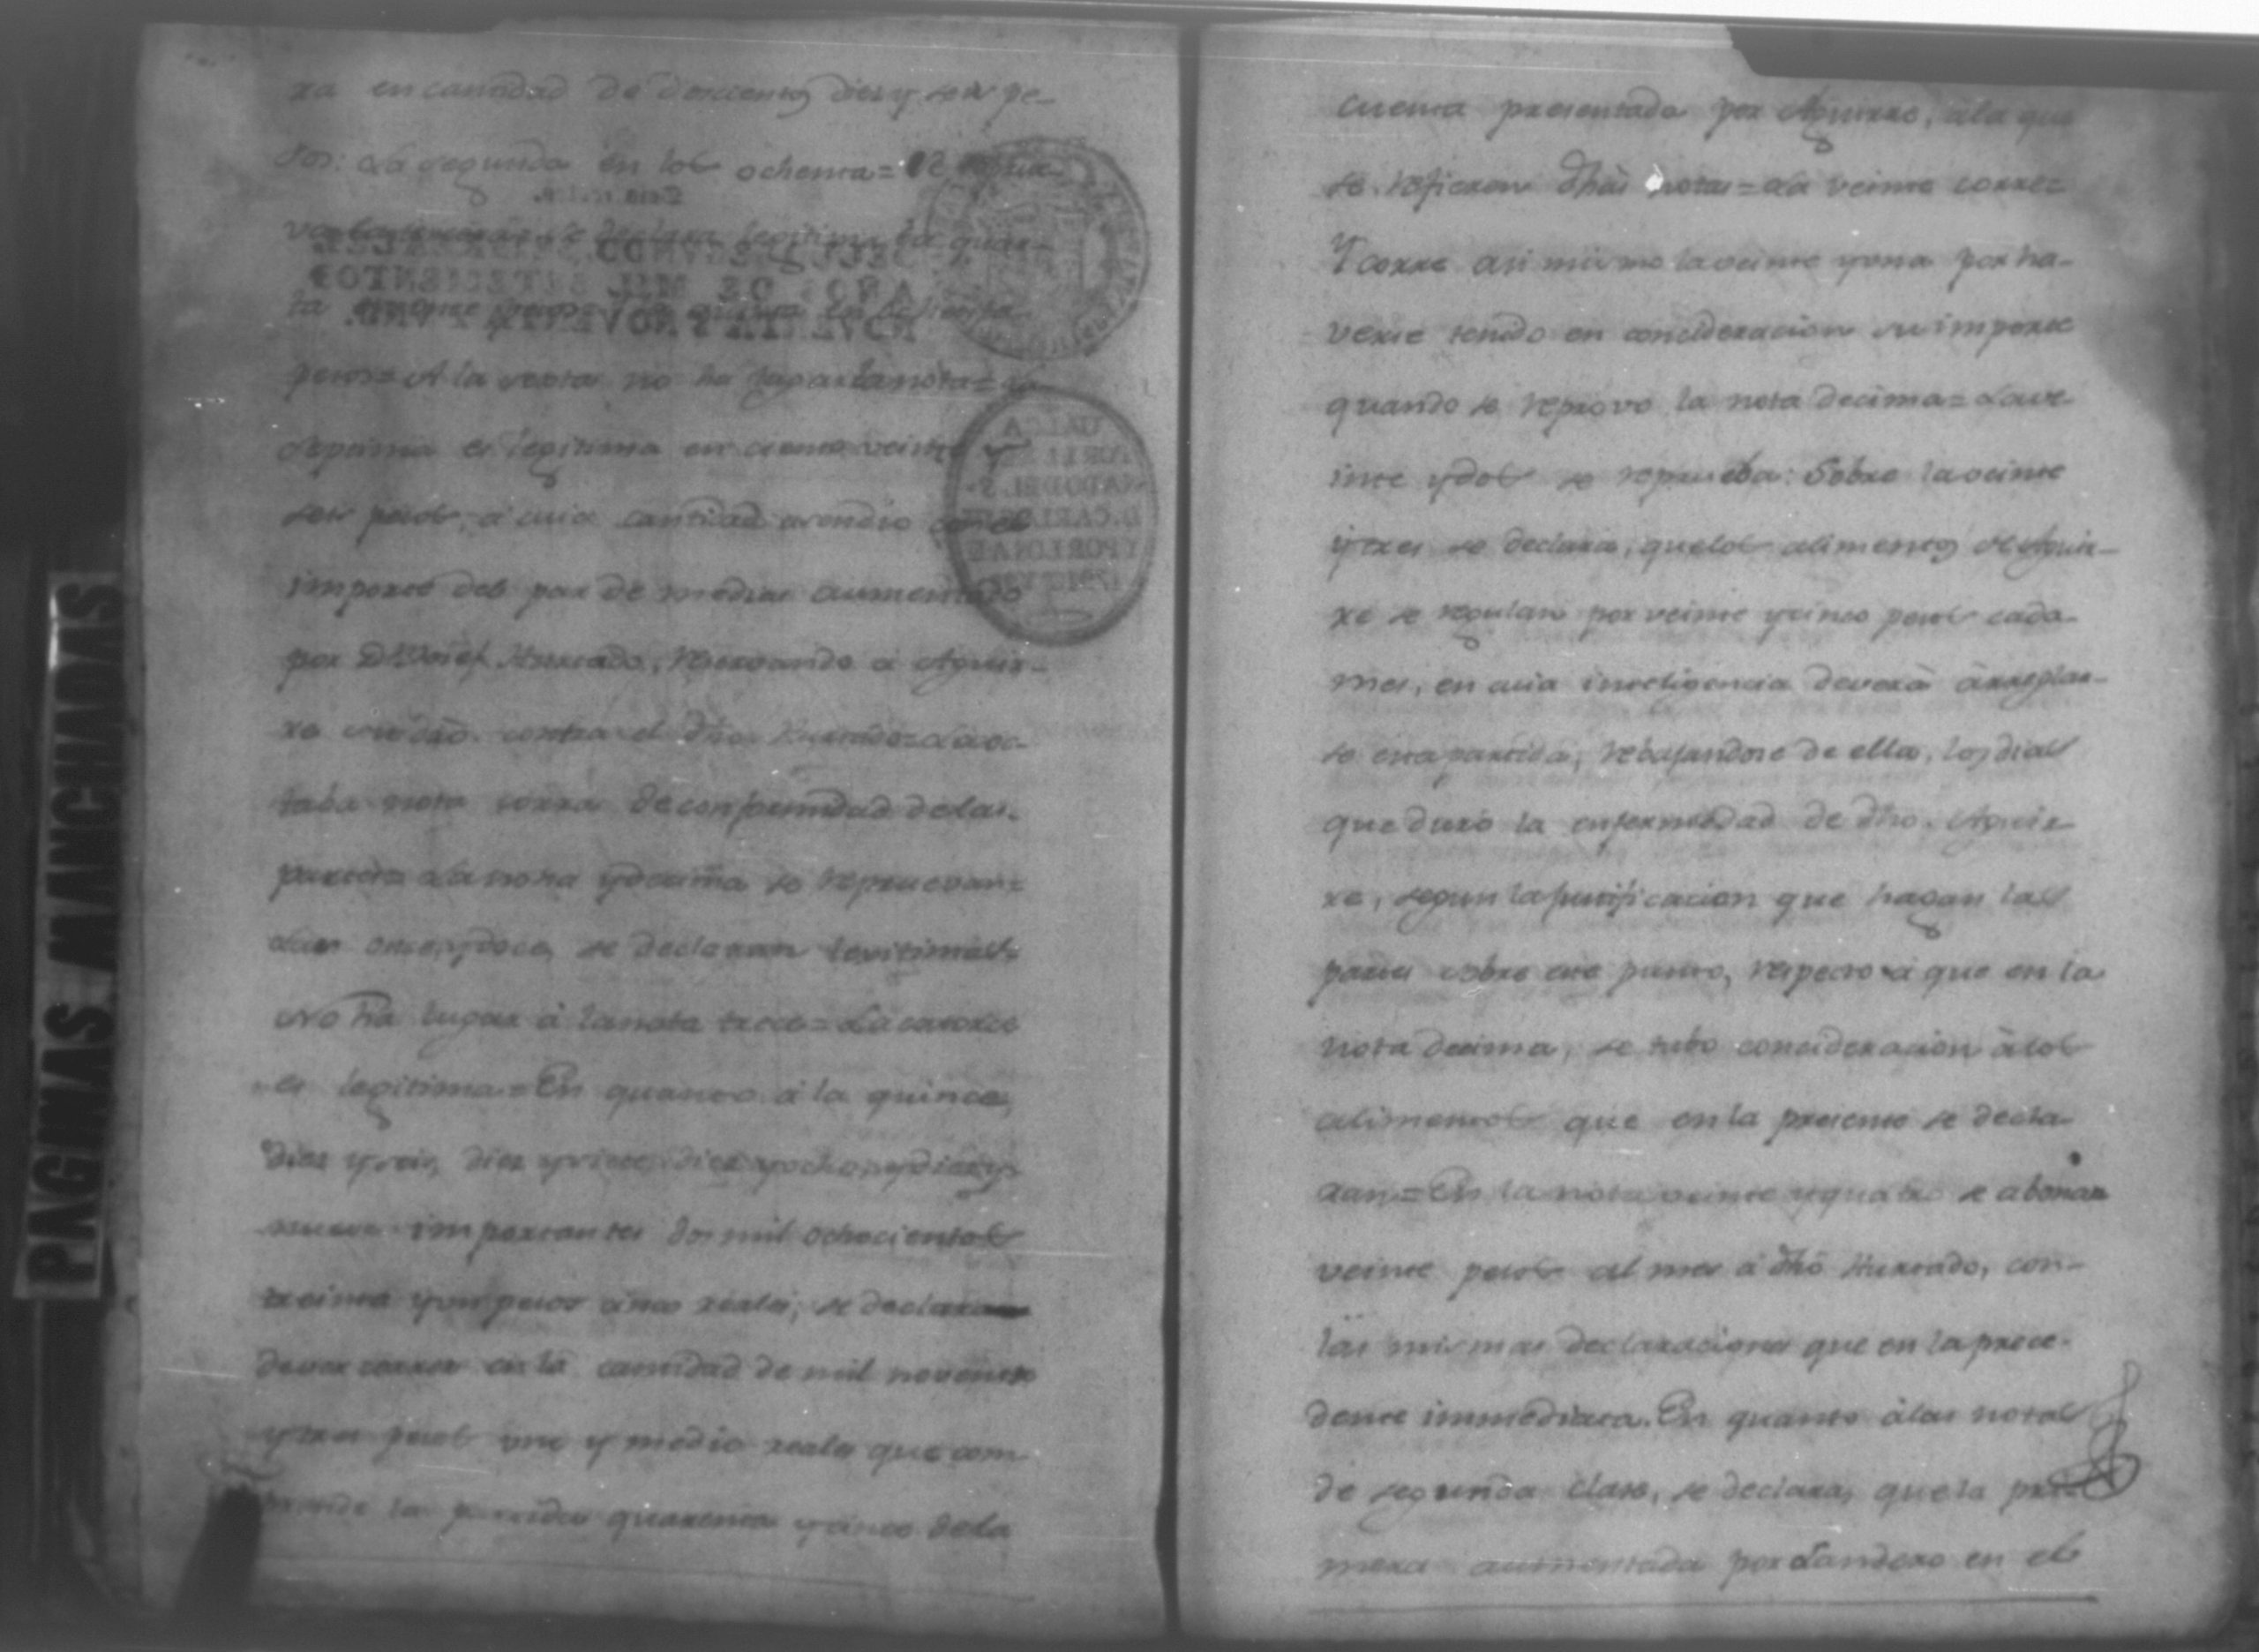 ra en cantidad de doscientos diez y seis pe-
sos: La segunda en los ochenta =
se declara legitima la quar-
ta
pesos = A la sexta no ha lugar la nota =
septima es legitima en ciento veinte y
seis pesos, a cuia cantidad asendio con el
importe del par de medias aumentado
por Dn Josef Hurtado, reservando a Aguir-
re su dro. contra el dho. Hurtado = La oc-
taba nota corra de conformidad de las
partes = La nona y decima se repruevan =
Las once, y doce, se declaran legitimas =
No ha lugar à la nota trece = La catorce
es legitima = En quanto à la quince,
diez y seis, diez y siete, diez y ocho, y diez y
nueve importantes dos mil ochocientos
treinta y un pesos cinco reales, se declaran
dever correr en la cantidad de mil novecientos
y tres pesos uno y medio reales que com
prende la partida quarenta y cinco de la
cuenta presentada por Aguirre, à la que
se refieren dhas notas = La veinte corre =
Y corre asi mismo la veinte y una por ha-
verse tenido en concideracion su importe
quando se reprovo la nota decima = La ve
inte y dos se reprueba: Sobre la veinte
y tres se declara, que los alimentos de Aguir-
re se regulan por veinte y cinco pesos cada
mes, en cuia inteligencia deverà àrreglar-
se esta partida, rebajandose de ella, los dias
que durò la enfermedad de dho. Aguir-
re, segun la justificacion que hagan las
partes sobre este punto, respecto à que en la
nota decima, se tubo concideracion à los
alimentos que en la presente se decla-
ran = En la nota veinte y quatro se abonan
veinte pesos al mes à dho Hurtado, con
las mismas declaraciones que en la prece-
dente immediata. En quanto à las notas
de segunda clase, se declara, que la pri
mera aumentada por Landero en el
PAGINAS MANCHADAS